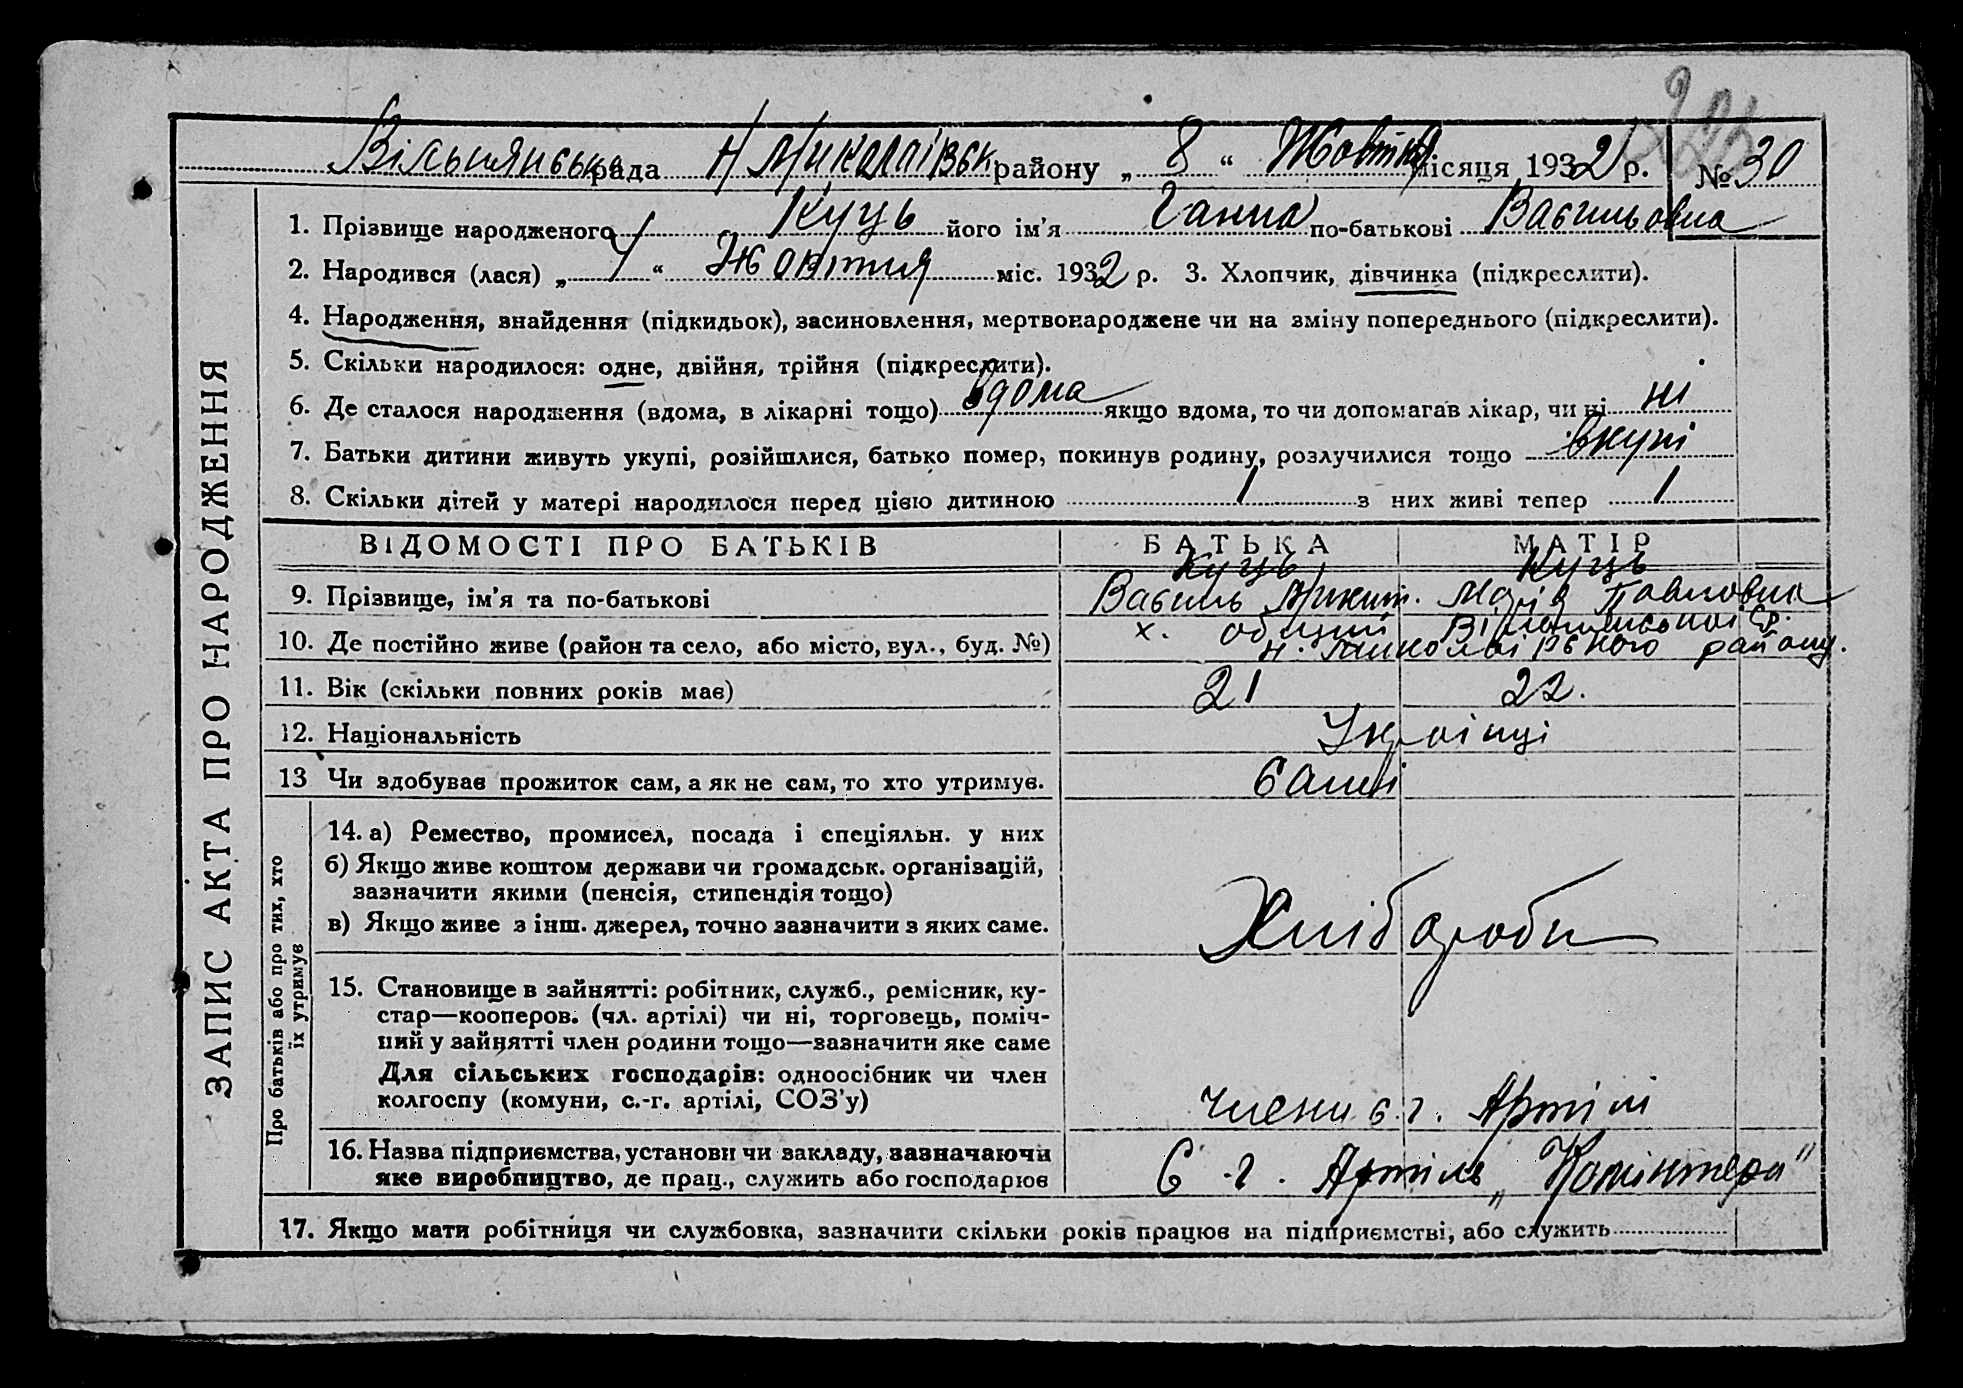 Вільнянська рада Н Миколаївськ району „ 8 “ Жовтня місяця 1932 р. № 30
1. Прізвище народженого Куць його ім’я Ганна по-батькові Васильовна
2. Народився (лася) „ 1 “ Жовтня міс. 1932 р. 3. Хлопчик, дівчинка (підкреслити).
4. Народження, знайдення (підкидьок), засиновлення, мертвонароджене чи на зміну попереднього (підкреслити).
5. Скільки народилося: одне, двійня, трійня (підкреслити).
6. Де сталося народження (вдома, в лікарні тощо) вдома якщо вдома, то чи допомагав лікар, чи ні ні
7. Батьки дитини живуть укупі, розійшлися, батько помер, покинув родину, розлучилися тощо вкупі
8. Скільки дітей у матері народилося перед цією дитиною 1 з них живі тепер 1
ЗАПИС АКТА ПРО НАРОДЖЕННЯ
ВІДОМОСТІ ПРО БАТЬКІВ БАТЬКА МАТІР
Куць Куць
9. Прізвище, ім’я та по-батькові Василь Микит. Марія Павловна
10. Де постійно живе (район та село, або місто, вул., буд. №) х. Вільнянської
Н. Миколаівського району.
11. Вік (скільки повних років має) 21 22.
12. Національність Українці
13 Чи здобуває прожиток сам, а як не сам, то хто утримує. Самі
Про батьків або про тих, хто
їх утримує
14. а) Ремество, промисел, посада і спеціяльн. у них
б) Якщо живе коштом держави чи громадськ. організацій,
зазначити якими (пенсія, стипендія тощо)
в) Якщо живе з інш. джерел, точно зазначити з яких саме.
Хлібороби
15. Становище в зайнятті: робітник, служб., ремісник, ку-
стар—кооперов. (чл. артілі) чи ні, торговець, поміч-
ний у зайнятті член родини тощо—зазначити яке саме
Для сільських господарів: одноосібник чи член
колгоспу (комуни, с.-г. артілі, СОЗ’у) члени с.г. Артілі
16. Назва підприємства, установи чи закладу, зазначаючи
яке виробництво, де прац., служить або господарює С.-г. Артіль „Комінтерн“
17. Якщо мати робітниця чи службовка, зазначити скільки років працює на підприємстві, або служить